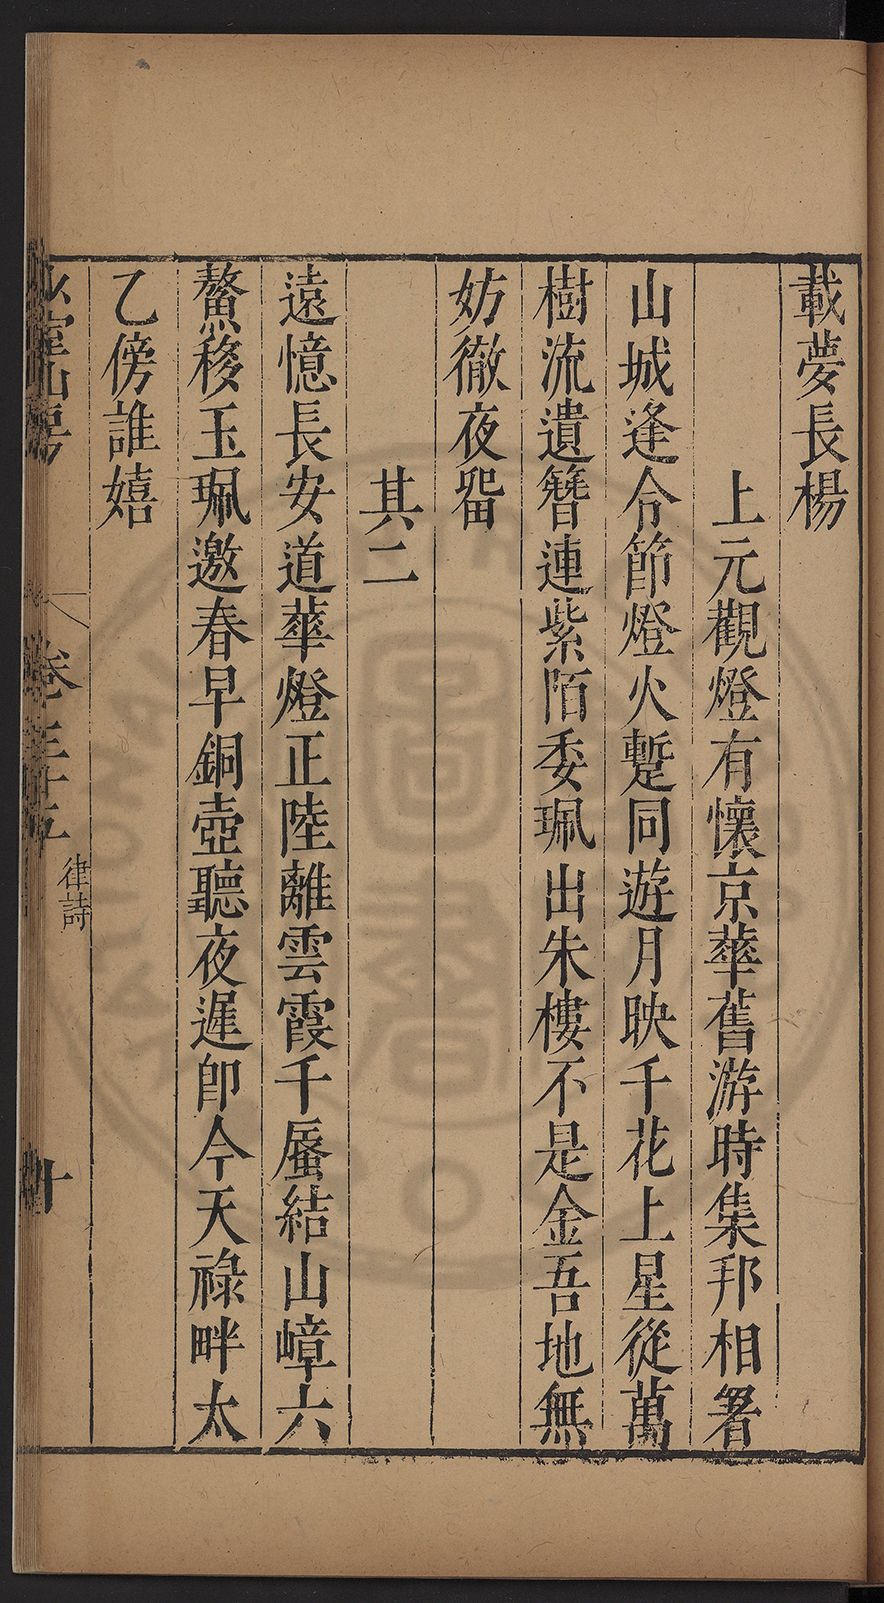 載夢長楊
上元觀燈有懷京華舊游時集邦相署
山城逢令節燈火蹔同遊月映千花上星從萬
樹流遺簪連紫陌委珮出朱樓不是金吾地無
妨徹夜留
其二
遠憶長安道華燈正陸離雲霞千蜃結山嶂六
鰲移玉珮邀春早銅壺聽夜遲卽今天祿畔太
乙傍誰嬉
卷三十五
律詩
十